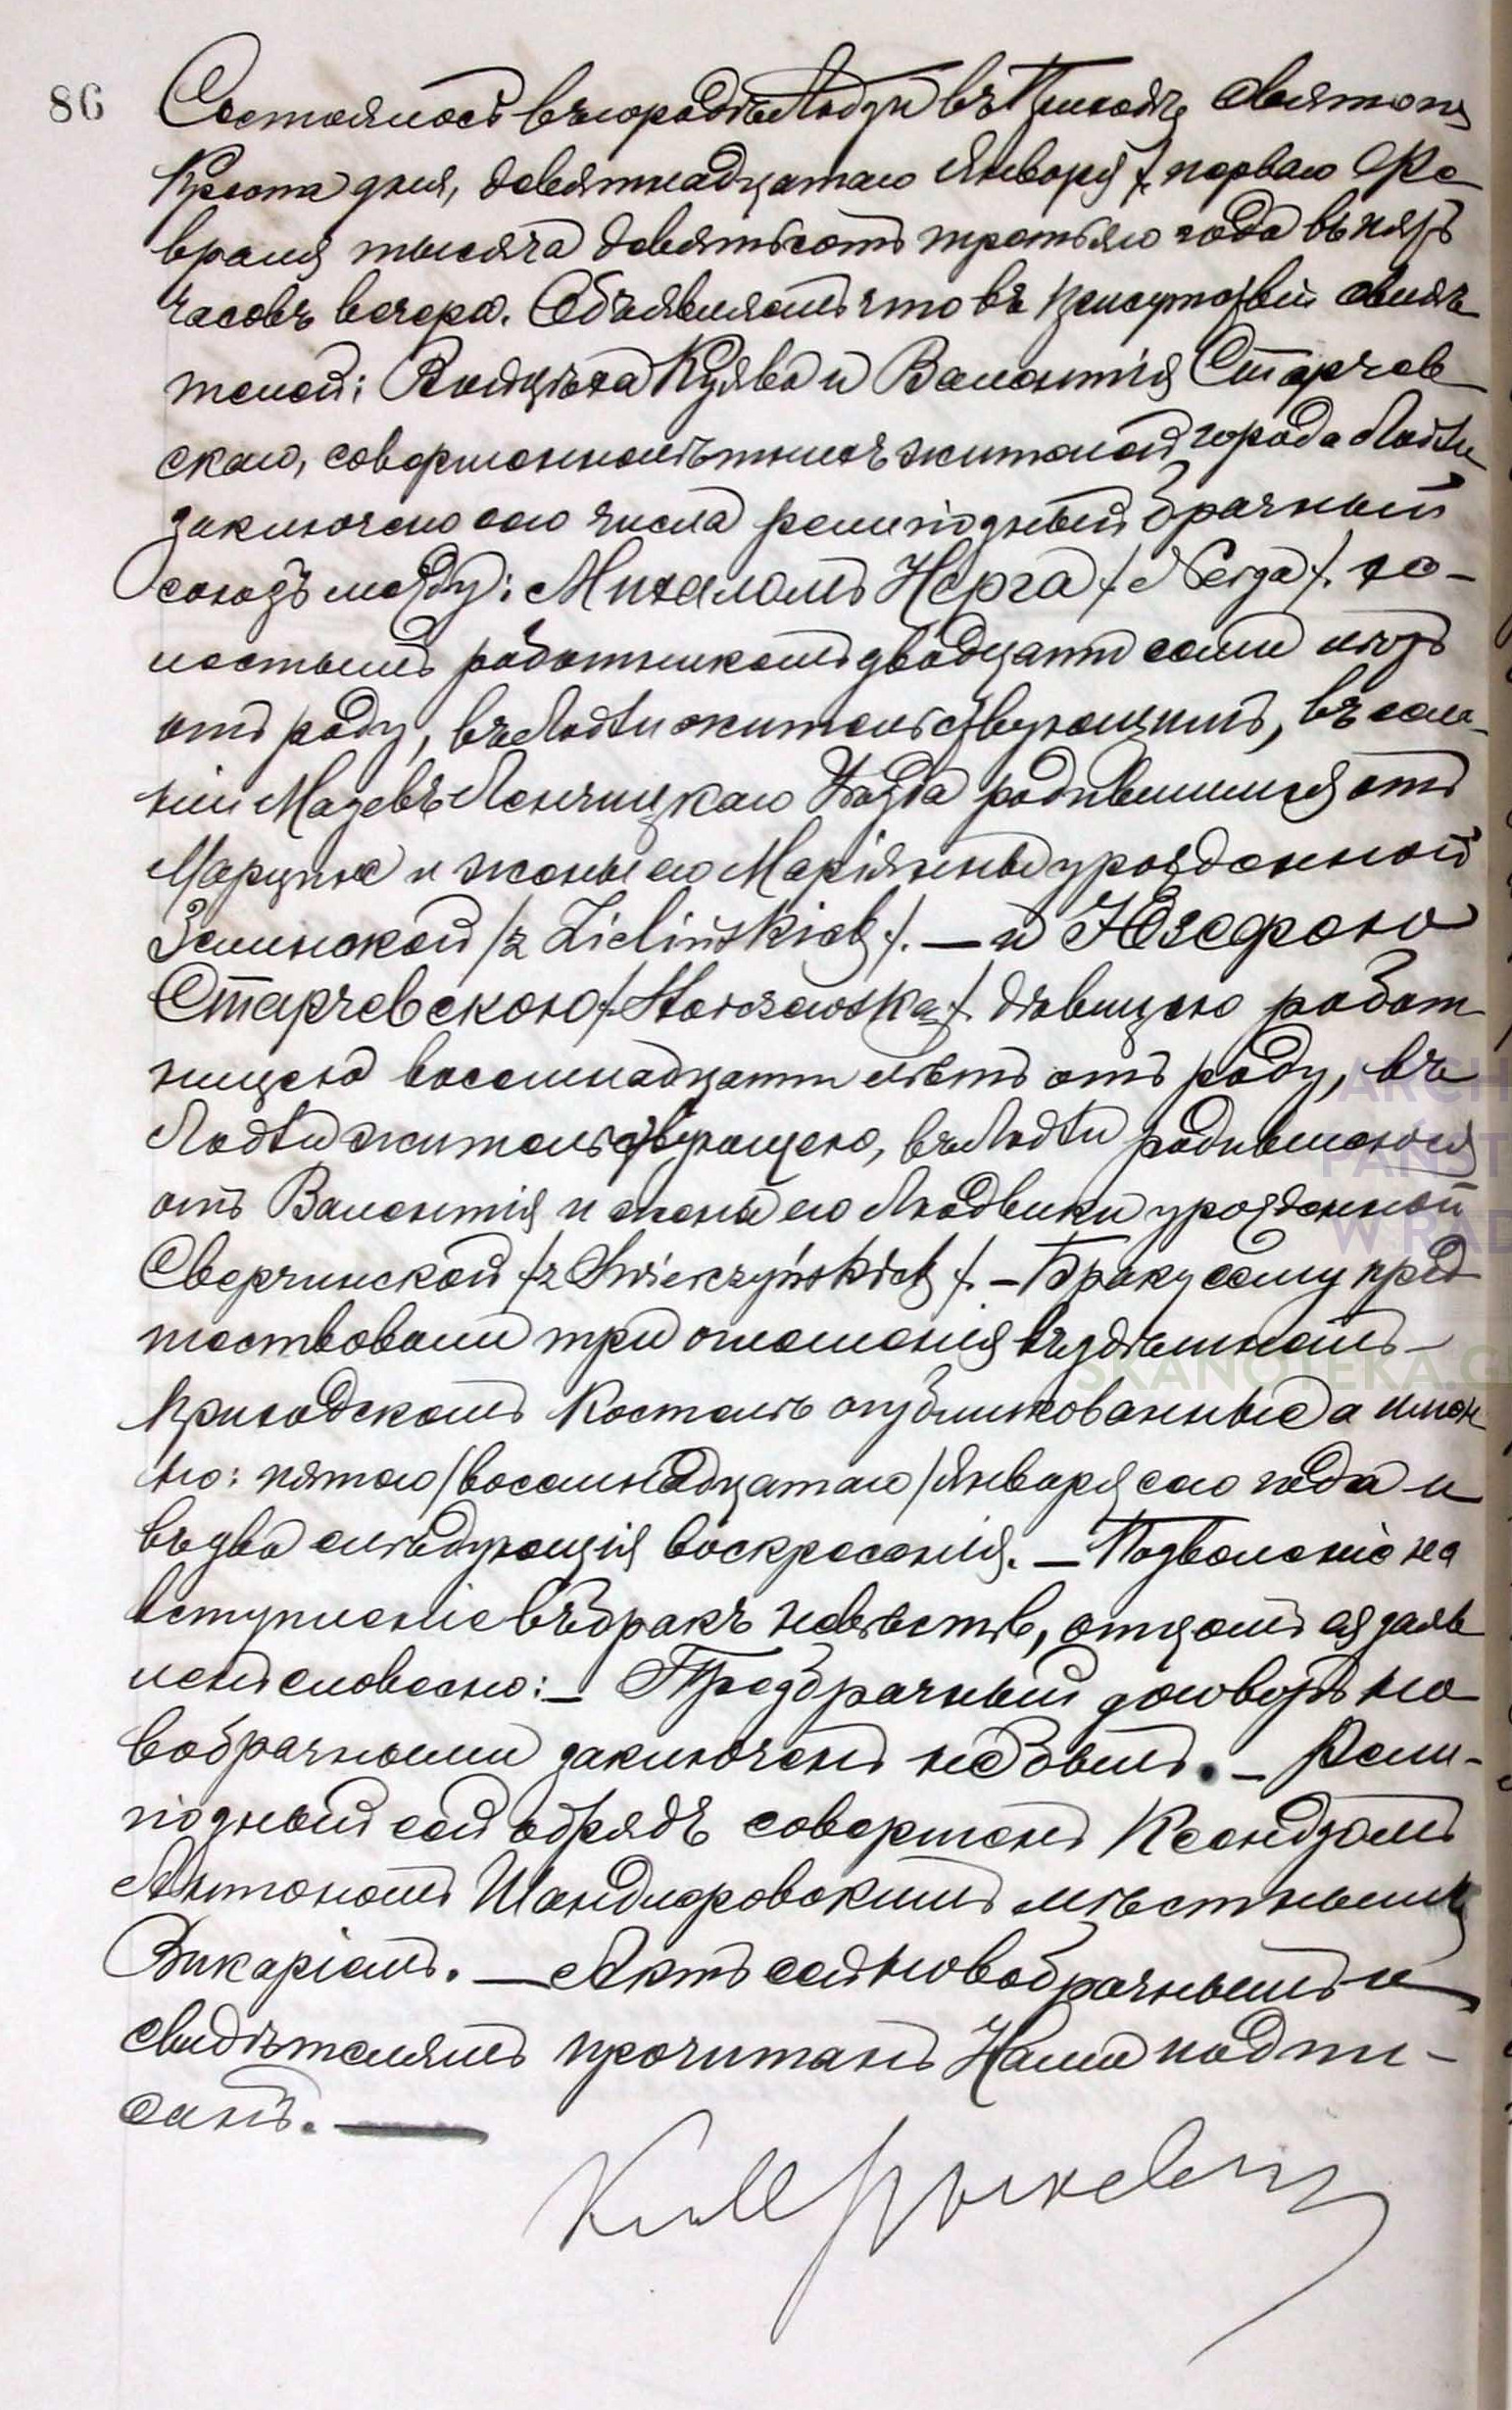 86
Состоялось въ городѣ Лодзи въ Приходѣ Святого
Креста дня, девятнадцатаго Января /. перваго Фе-
враля тысяча девятьсотъ третьяго года въ пять
часовъ вечера. Объявляемъ что въ присутствіи свидѣ-
телей: Войцѣха Куява и Валентія Старчев-
скаго, совершеннолѣтныхъ жителей города Лодзи
заключено сего числа религіозный брачный
союзъ между: Михаломъ Нерга /. Nerga /. хо-
лостымъ работникомъ двадцати семи лѣтъ
отъ роду, въ Лодзи жительствующимъ, въ селе-
ніи Мазевъ Ленчицкаго Уѣзда родившимся отъ
Марцина и жены его Маріянны урожденной
Зелинской /z Zielińskich /. — и Юзефою
Старчевскою /. Starczewska /. дѣвицею работ-
ницею восемнадцати лѣтъ отъ роду, въ
Лодзи жительствующею, въ Лодзи родившеюся
отъ Валентія и жены его Людвики урожденной
Сверчинской /z Świerczyńskich /. – Браку сему пред-
шествовали три оглашенія въ здѣшнемъ
приходскомъ Костелѣ опубликованные а имен-
но: пятаго /восемнадцатаго/ Января сего года и
въ два слѣдующія воскресенія. — Позволеніе на
вступленіе въ бракъ невѣстѣ, отцомъ ея заяв-
лено словесно: – Предбрачный договоръ но-
вобрачными заключенъ не былъ. – Рели-
гіозный сей обрядъ совершенъ Ксендзомъ
Антономъ Шандлеровскимъ мѣстнымъ
Викаріемъ. — Актъ сей новобрачнымъ и
свидѣтелямъ прочитанъ Нами подпи-
санъ. —
ARCH
PAŃST
W RAD
SKANOTEKA.G